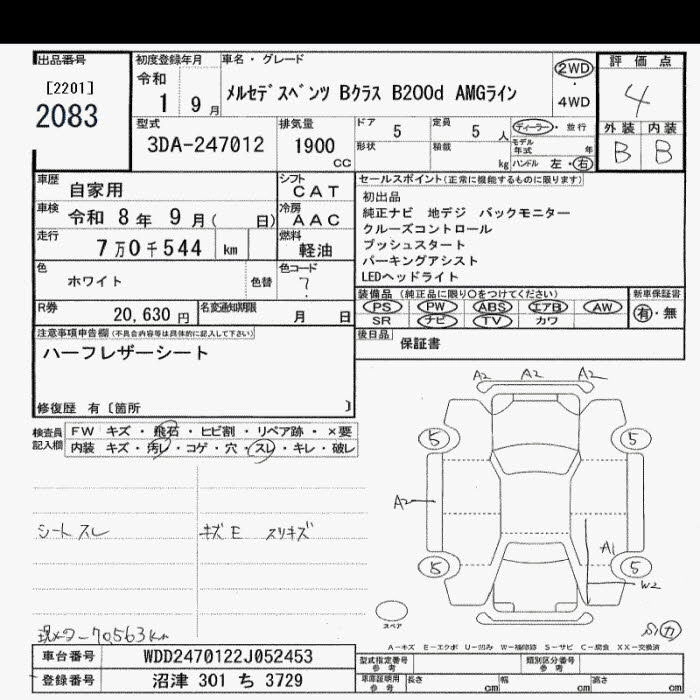 出品番号
[2201]
2083
初度登録年月
令和
1 9月
車名・グレード
メルセデスベンツ Bクラス B200d AMGライン
2WD
4WD
評価点
4
外装 内装
B B
型式
3DA-247012
排気量
1900
cc
ドア
5
定員
5 人
形状
積載
kg
ディーラー・並行
モデル年式 年
ハンドル 左・右
車歴
自家用
車検
令和 8年 9月( 日)
走行
7万0千544 km
色
ホワイト
色替
シフト
CAT
冷房
AAC
燃料
軽油
色コード
?
R券
20,630 円
名変通知期限
月 日
セールスポイント(正常に機能するものに限ります)
初出品
純正ナビ 地デジ バックモニター
クルーズコントロール
プッシュスタート
パーキングアシスト
LEDヘッドライト
装備品 (純正品に限り○をつけてください)
PS PW ABS エアB AW
SR ナビ TV カワ
新車保証書
有・無
後日品
保証書
注意事項申告欄(不具合内容等は具体的に記入して下さい)
ハーフレザーシート
修復歴 有〔箇所 〕
検査員記入欄
FW キズ・飛石・ヒビ割・リペア跡・×要
内装 キズ・汚レ・コゲ・穴・スレ・キレ・破レ
シートスレ
キズE スリキズ
現メーター70563km
A2 A2 A2
5 5
A2
A1
5 5
W2
スペア
A-キズ E-エクボ U-凹み W-補修跡 S-サビ C-腐食 XX-交換済
車台番号
WDD2470122J052453
登録番号
沼津 301 ち 3729
型式指定番号
参考
類別区分番号
参考
車庫証明用
参考
長さ cm
幅 cm
高さ cm